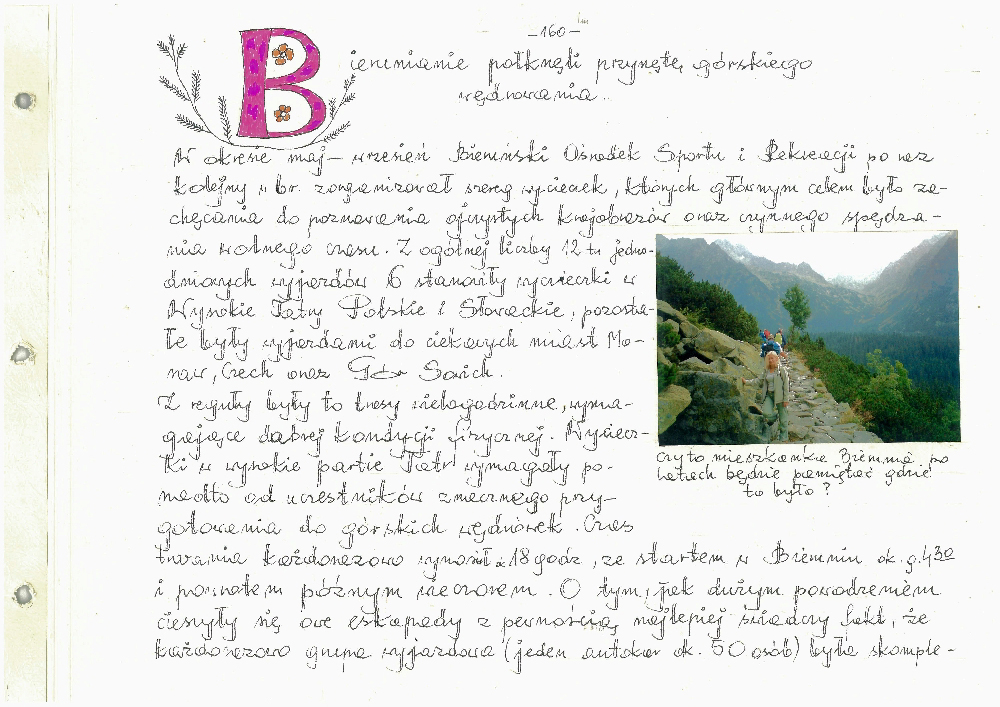 -160-
Bierunianie połknęli przynętę górskiego
wędrowania..
W okresie maj - wrzesień Bieruński Ośrodek Sportu i Rekreacji po raz
kolejny w br. zorganizował szereg wycieczek, których głównym celem było za-
chęcania do poznawania ojczystych krajobrazów oraz czynnego spędza-
nia wolnego czasu. Z ogólnej liczby 12 tu jedno-
dniowych wyjazdów 6 stanowiły wycieczki w
Wysokie Tatry Polskie i Słowackie, pozosta-
łe były wyjazdami do ciekawych miast Mo-
raw, Czech oraz Gór Sowich.
Z reguły były to trasy wielogodzinne, wyma-
gające dobrej kondycji fizycznej. Wyciecz-
ki w wysokie partie Tatr wymagały po-
nadto od uczestników znacznego przy-
gotowania do górskich wędrówek. Czas
trwania każdorazowo wynosił ok 18 godz, ze startem w Bieruniu ok. g. 430
i powrotem późnym wieczorem. O tym, jak dużym powodzeniem
cieszyły się owe eskapady z pewnością najlepiej świadczy fakt, że
każdorazowo grupa wyjazdowa (jeden autokar ok. 50 osób) była skomple-
Czy to mieszkanka Bierunia po
latach będzie pamiętać gdzie
to było?